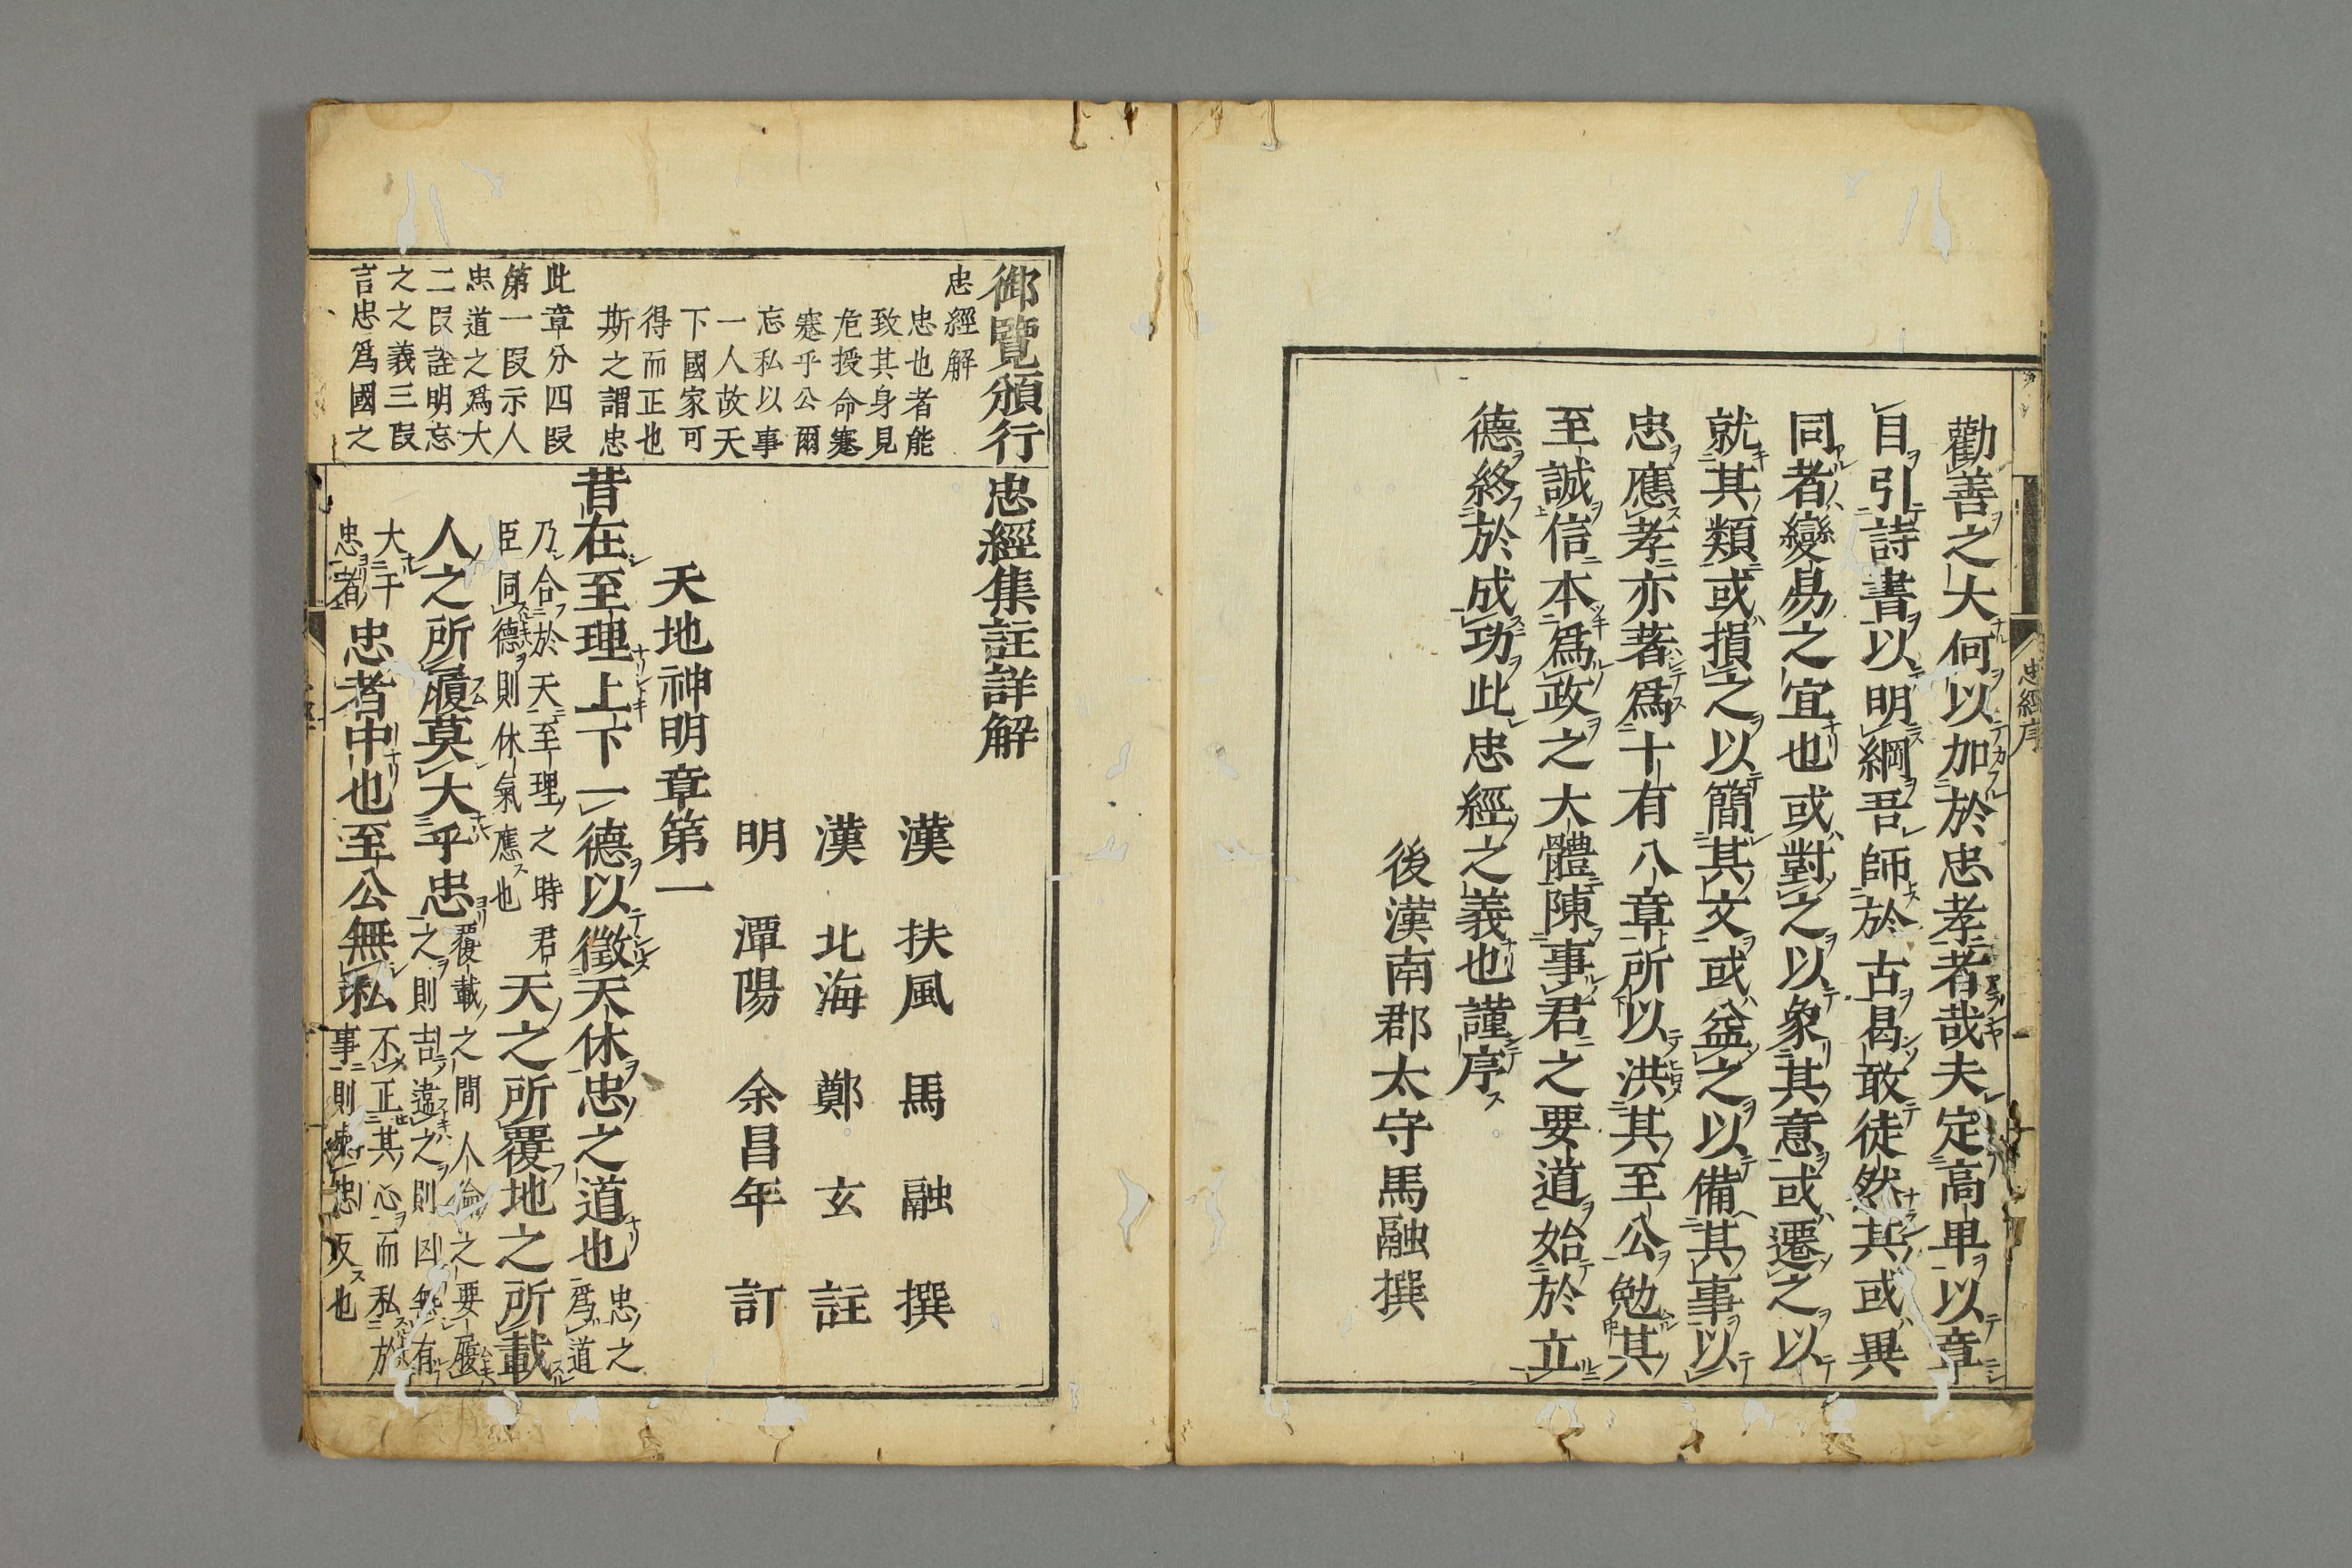 忠經序
勸善之大何以加於忠孝者哉夫定高卑以章
目引詩書以明綱吾師於古曷敢徒然其或異
同者變易之宜也或對之以象其意或遷之以
就其類或損之以簡其文或益之以備其事以
忠應孝亦著爲十有八章所以洪其至公勉其
至誠信本爲政之大體陳事君之要道始於立
德終於成功此忠經之義也謹序
後漢南郡太守馬融撰
御覽頒行忠經集註詳解
忠經解
忠也者能
致其身見
危授命蹇
蹇乎公爾
忘私以事
一人故天
下國家可
得而正也
斯之謂忠
此章分四段
第一段示人
忠道之爲大
二段詮明忘
之之義三段
言忠爲國之
漢 扶風 馬融 撰
漢 北海 鄭玄 註
明 潭陽 余昌年 訂
天地神明章第一
昔在至理上下一德以徵天休忠之道也
忠之
爲道
乃合於天至理之時君
臣同德則休氣應也
天之所覆地之所載
人之所履莫大乎忠
覆載之間人倫之要履
之則吉違之則凶無有
大于
忠者
忠者中也至公無私
不正其心而私於
事則與忠反也